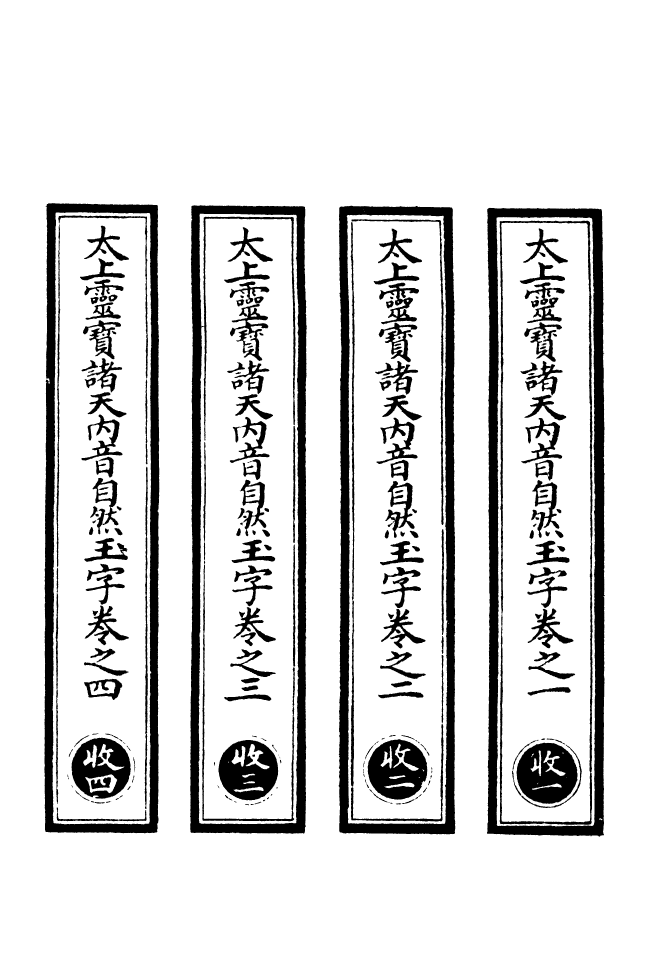 太上靈寶諸天內音自然玉字卷之一
收一
太上靈寶諸天內音自然玉字卷之二
收二
太上靈寶諸天內音自然玉字卷之三
收三
太上靈寶諸天內音自然玉字卷之四
收四